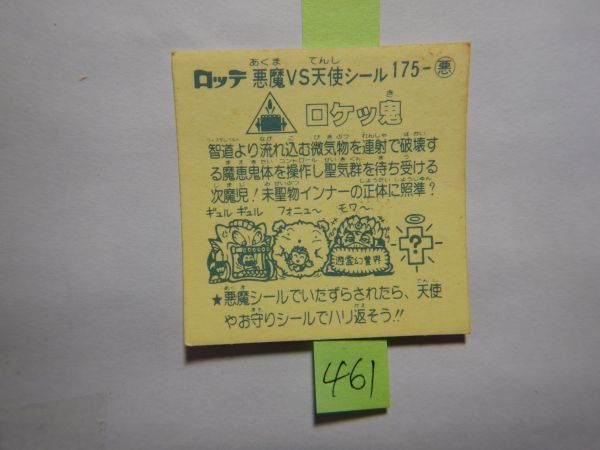 ロッテ 悪魔VS天使シール 175-悪
ロケッ鬼
智道より流れ込む微気物を連射で破壊す
る魔恵鬼体を操作し聖気群を待ち受ける
次魔児！未聖物インナーの正体に照準？
ギュル ギュル フォニュ〜 モワ〜
?
★悪魔シールでいたずらされたら、天使
やお守りシールでハリ返そう!!
461